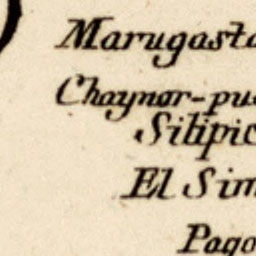 Marugasta
Chaynar-pu
Silipic
El Sim
Pago